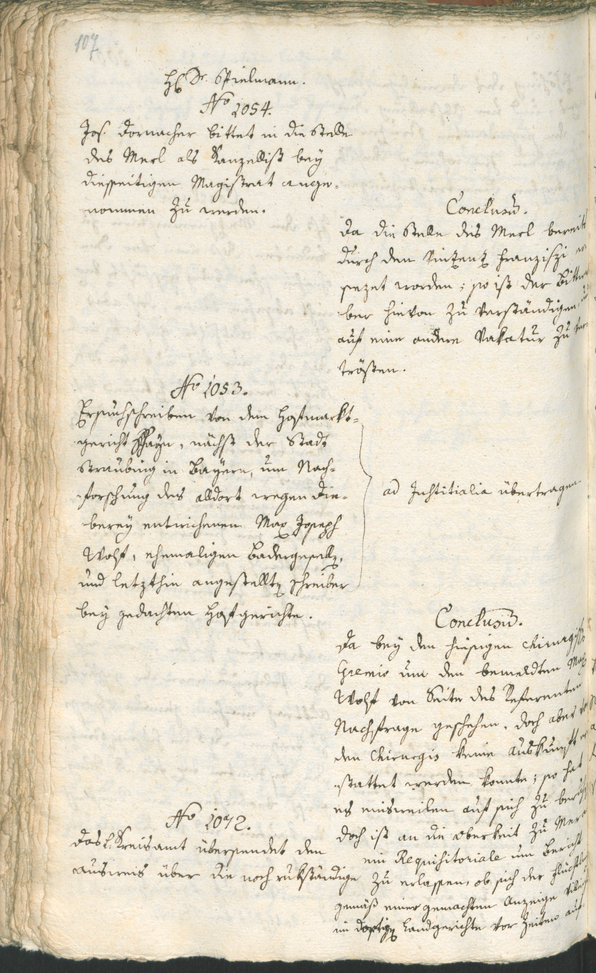 107
H. Dr. Spielmann.
No 1054.
Jos. Dornacher bittet in die Stelle
des Merl als Kanzellist bey
diesseitigen Magistrat ange-
nommen zu werden.
Conclusum.
Da die Stelle des Merl bereits
durch den Vinzenz Franziszi
sezet worden; so ist der Bittwer-
ber hievon zu verständigen
auf eine andere Vakatur zu ver
trösten.
No 1053.
Ersuchschreiben von dem Hofmarkt-
gericht nächst der Stadt
Straubing in Bayern, um Nach-
forschung des alldort wegen Die-
berey entwichenen Max Joseph
Wohst, ehemaligen Badergesell,
und letzthin angestellte Schreiber
bey gedachten Hofgerichte.
ad Justitialia übertragen
Conclusum.
Da bey den hiesigen Chirurgischen
Gremio um den bemeldten Max
Wohst von Seite des Referenten
Nachfrage geschehen, doch aber
den Chirurgis keine Auskunft er
stattet werden konnte; so hat
es einsweilen auf sich zu beruhen
doch ist an die Oberkeit zu
ein Requisitoriale um Bericht
zu erlassen, ob sich der Flüchtling
gemäß einer gemachten Anzeige
im dortigen Landgerichte vor Zeiten auf
No 1072.
Das k. Kreisamt übersendet den
Ausweis über die noch rükständige